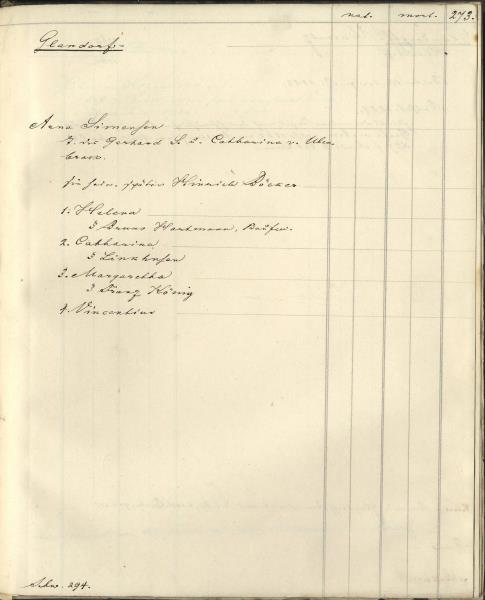 nat. mort. 273.
Glandorf.
Anna Simonsen
T. des Gerhard S. u. Catharina v. Ulen
brock.
sie heir. später Hinrich Böcker
1. Helena
Bruns Hartmann,
2. Catharina
3. Margaretha
Franz König
4. Vincentius
294.